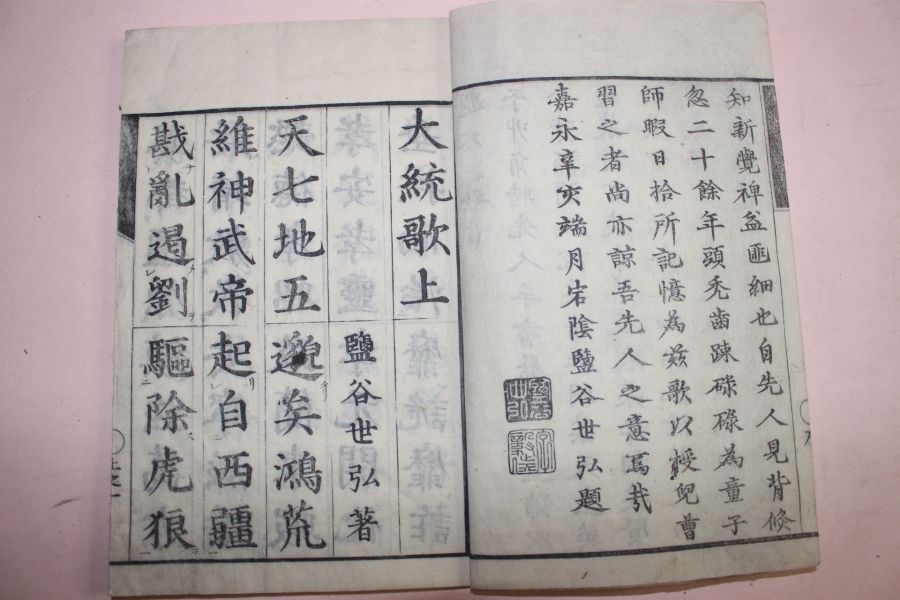 知新覺裨益匪細也自先人見背倐
忽二十餘年頭禿齒踈碌碌為童子
師暇日拾所記憶為茲歌以授兒曹
習之者尚亦諒吾先人之意焉哉
嘉永辛亥端月宕陰鹽谷世弘題
大統歌上
鹽谷世弘著
天七地五邈矣鴻荒
維神武帝起自西疆
戡亂遏劉驅除虎狼